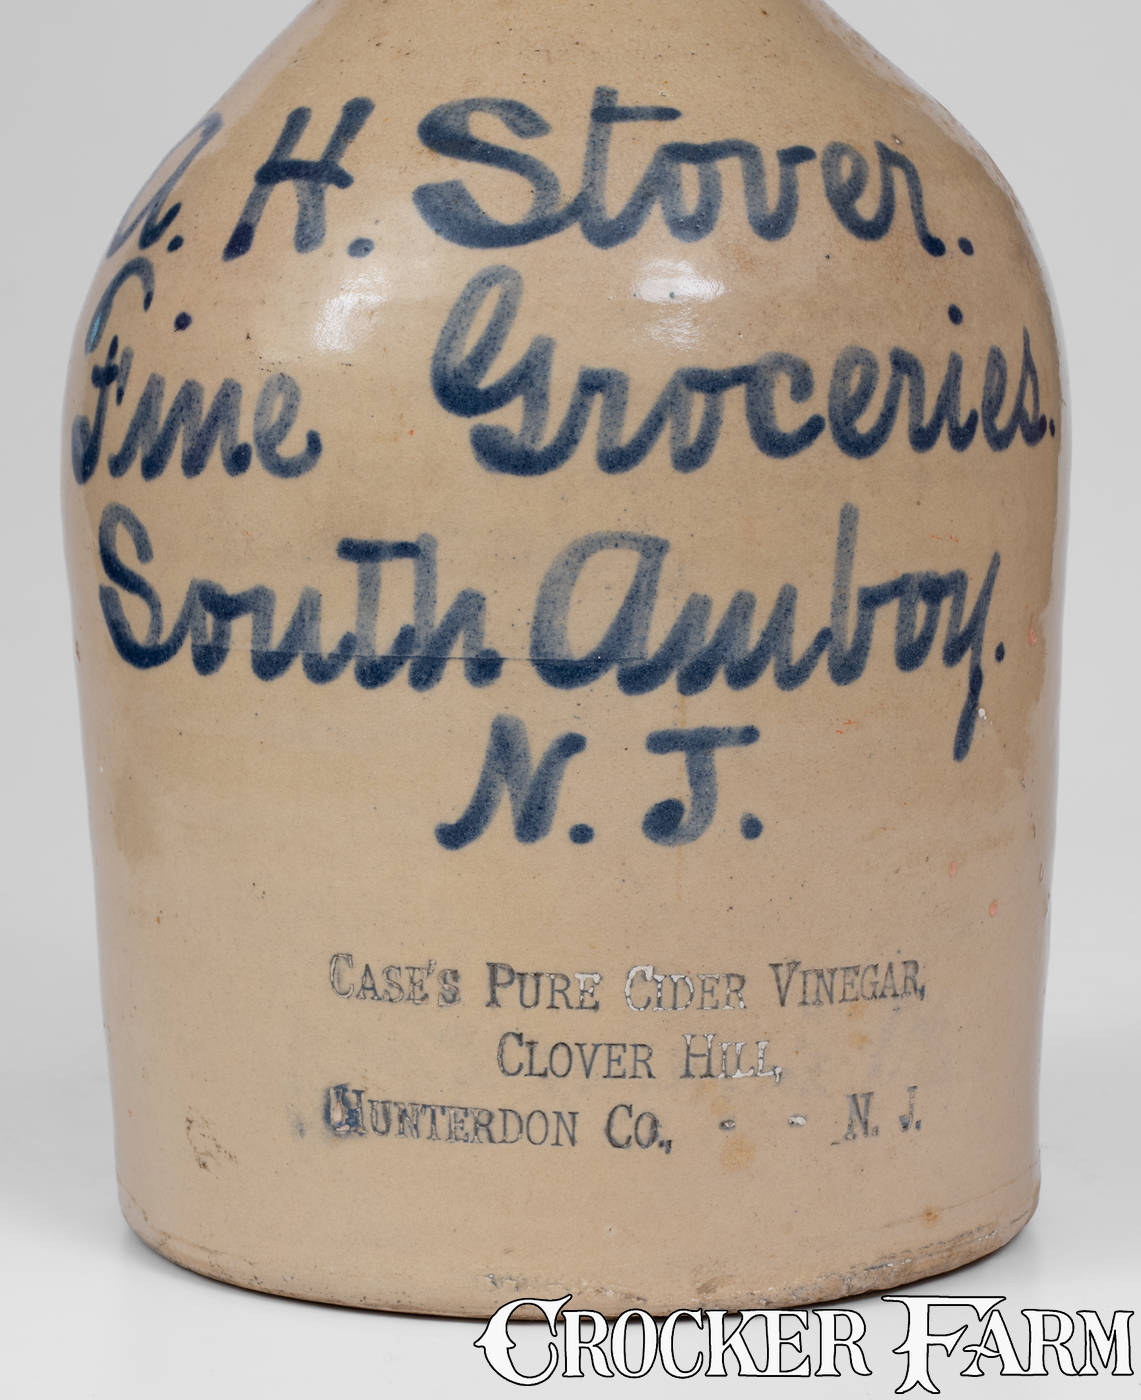 A. H. Stover.
Fine Groceries.
South Amboy.
N. J.
CASE'S PURE CIDER VINEGAR,
CLOVER HILL,
HUNTERDON CO., - - N. J.
CROCKER FARM